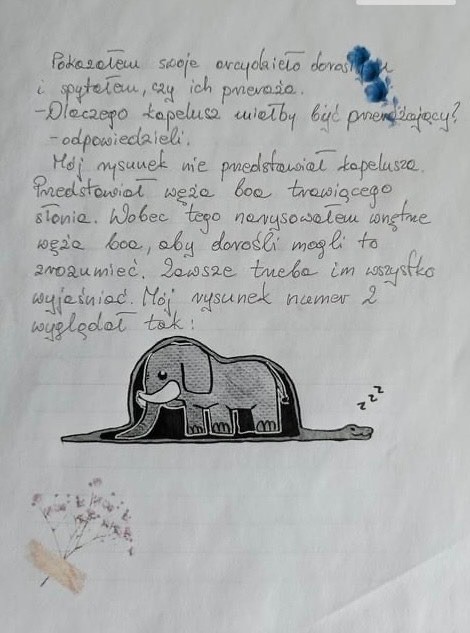 Pokazałem swoje arcydzieło
i spytałem, czy ich przeraża.
-Dlaczego kapelusz miałby być przerażający?
-odpowiedzieli.
Mój rysunek nie przedstawiał kapelusza.
Przedstawiał węża boa trawiącego
słonia. Wobec tego narysowałem wnętrze
węża boa, aby dorośli mogli to
zrozumieć. Zawsze trzeba im wszystko
wyjaśniać. Mój rysunek numer 2
wyglądał tak:
z z z